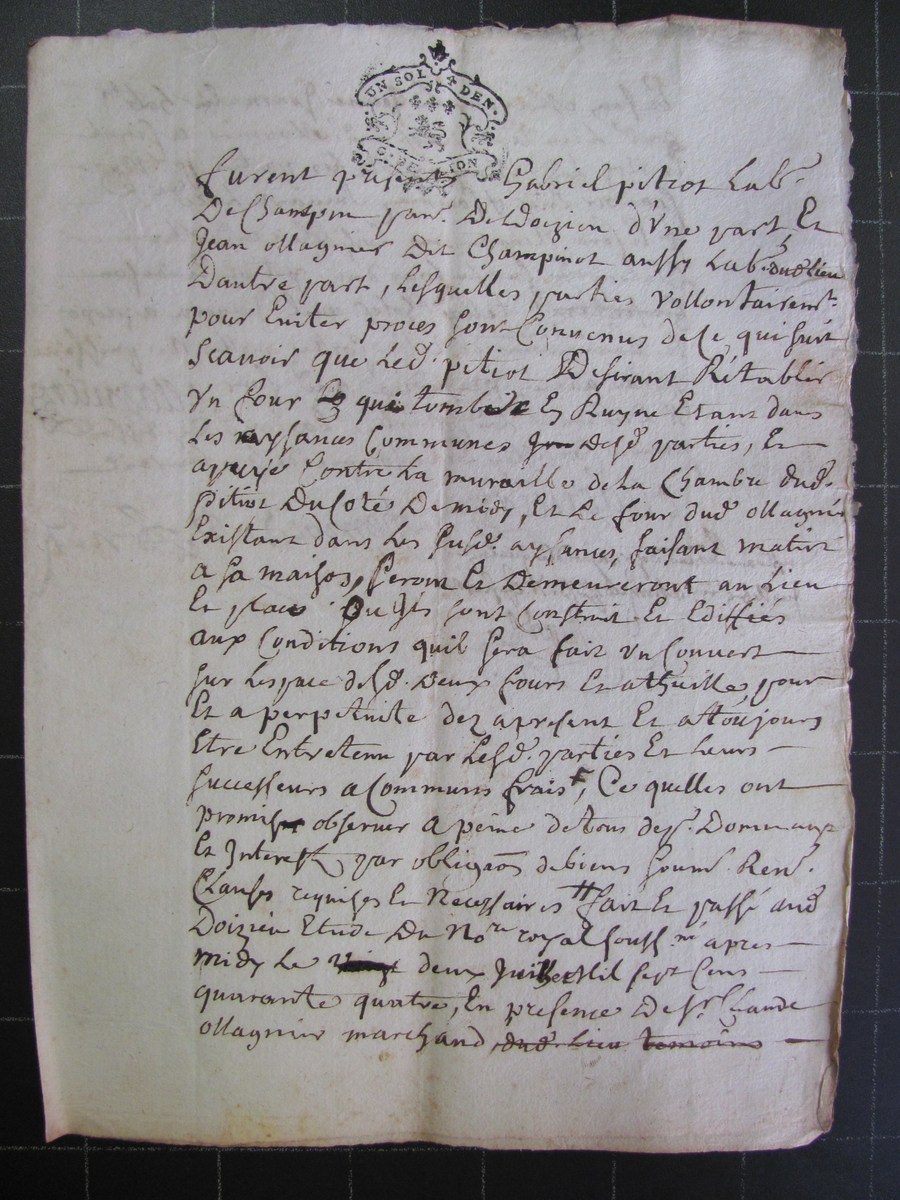 UN SOL 4 DEN.
G. DE LION
furent presents Gabriel pitiot Lab.r
De Champin par.se De doizieu d'Vne part, Et
Jean ollagnier Dit Champinot aussy Lab.r dud lieu
Dautre part, Lesquelles parties vollontairem.t
pour Eviter proces sont Convenus de ce qui suit
Scavoir que Led. pitiot Desirant Rétablir
Vn four qui tombe En Ruyne Etant dans
Les aysances Communes desd parties, Et
apuyé Contre La muraille de La Chambre dud.
pitiot Du Coté De midy, Et Le four dud ollagnier
Existant dans Les susd. aysances, faisant
a sa maison, seront Et Demeureront au Lieu
Et place Ou Ils sont Construit Et Ediffiés
aux Conditions quil sera fait Vn Couvert
sur Lespace desd. Deux fours Et a thuille, pour
Et a perpetuite dez apresent Et a toujours
Etre Entretenu par Lesd. parties Et Leurs
successeurs a Communs frais, Ce quelles ont
promis observer a peine de tous desp. Dommages
Et Interest par obligaôn de biens soum. Ren.
Clauses requises Et Necessaires # fait Et passé aud
Doizieu Etude Du No.re royal souss.né apres
midy Le deux Juillet Mil sept Cens
quarante quatre, En presence De s.r Claude
ollagnier marchand dud. Lieu temoins